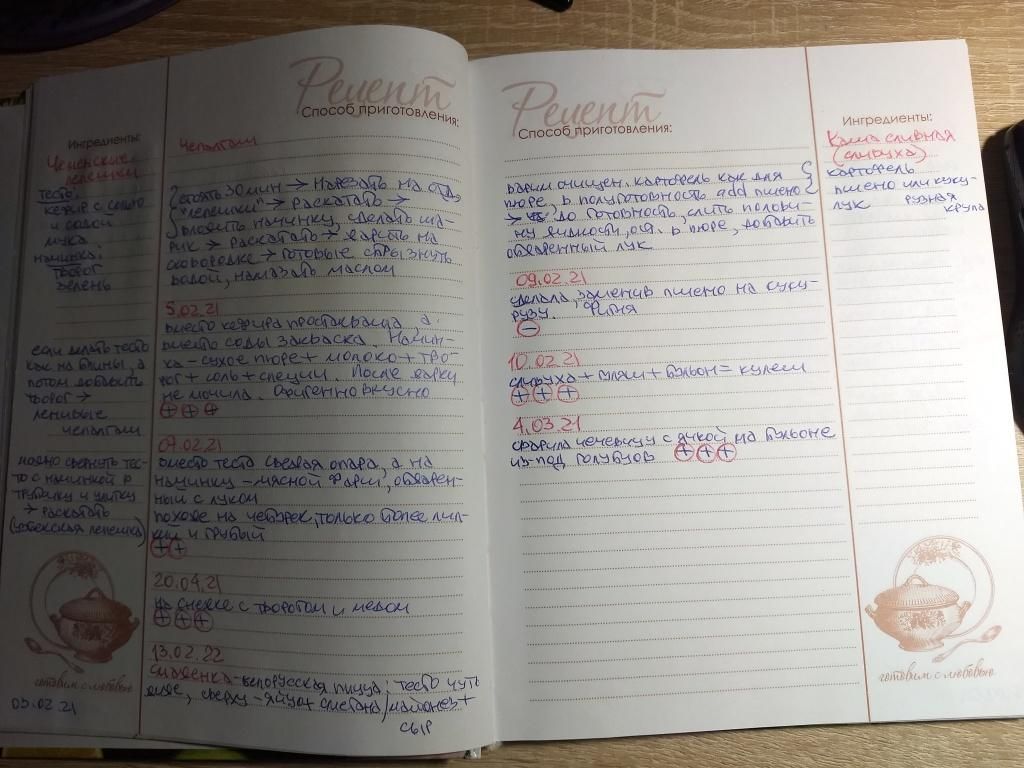 Рецепт
Способ приготовления:
Ингредиенты:
Чеченские
лепешки
тесто:
кефир с солью
и содой
мука
начинка:
творог
зелень
если делать тесто
как на блины, а
потом добавить
творог →
ленивые
чепалгаш
можно свернуть тес-
то с начинкой в
трубочку и улитку
→ раскатать
(узбекская лепешка)
готовим с любовью
05.02.21
Чепалгаш
стоять 30 мин → нарезать на отд.
"лепешки" → раскатать →
вложить начинку, сделать ша-
рик → раскатать → жарить на
сковородке → готовые сбрызнуть
водой, намазать маслом
5.02.21
вместо кефира простокваша, а
вместо соды закваска. Начин-
ка - сухое пюре + молоко + тво-
рог + соль + специи. После жарки
не мочила. Офигенно вкусно
+ + +
07.02.21
вместо теста съедвая опара, а на
начинку - мясной фарш, обжарен-
ный с луком
похоже на чебурек, только более лип-
кий и грубый
+ +
20.04.21
на снежке с творогом и медом
+ + +
13.02.22
смаженка - белорусская пицца: тесто чуть
жиже, сверху - яйца + сметана/майонез +
сыр
Рецепт
Способ приготовления:
Ингредиенты:
Каша сливная
(сливуха)
картофель
пшено или куку-
лук рузная
крупа
варим очищен. картофель как для
пюре, в полуготовность add пшено
→ до готовность, слить полови-
ну жидкости, в пюре, добавить
обжаренный лук
09.02.21
сделала, заменив пшено на куку-
рузу. Фигня
−
10.02.21
сливуха + гуляш + бульон = кулеш
+ + +
4.03.21
сварила чечевицу с ячкой на бульоне
из-под голубцов + + +
готовим с любовью